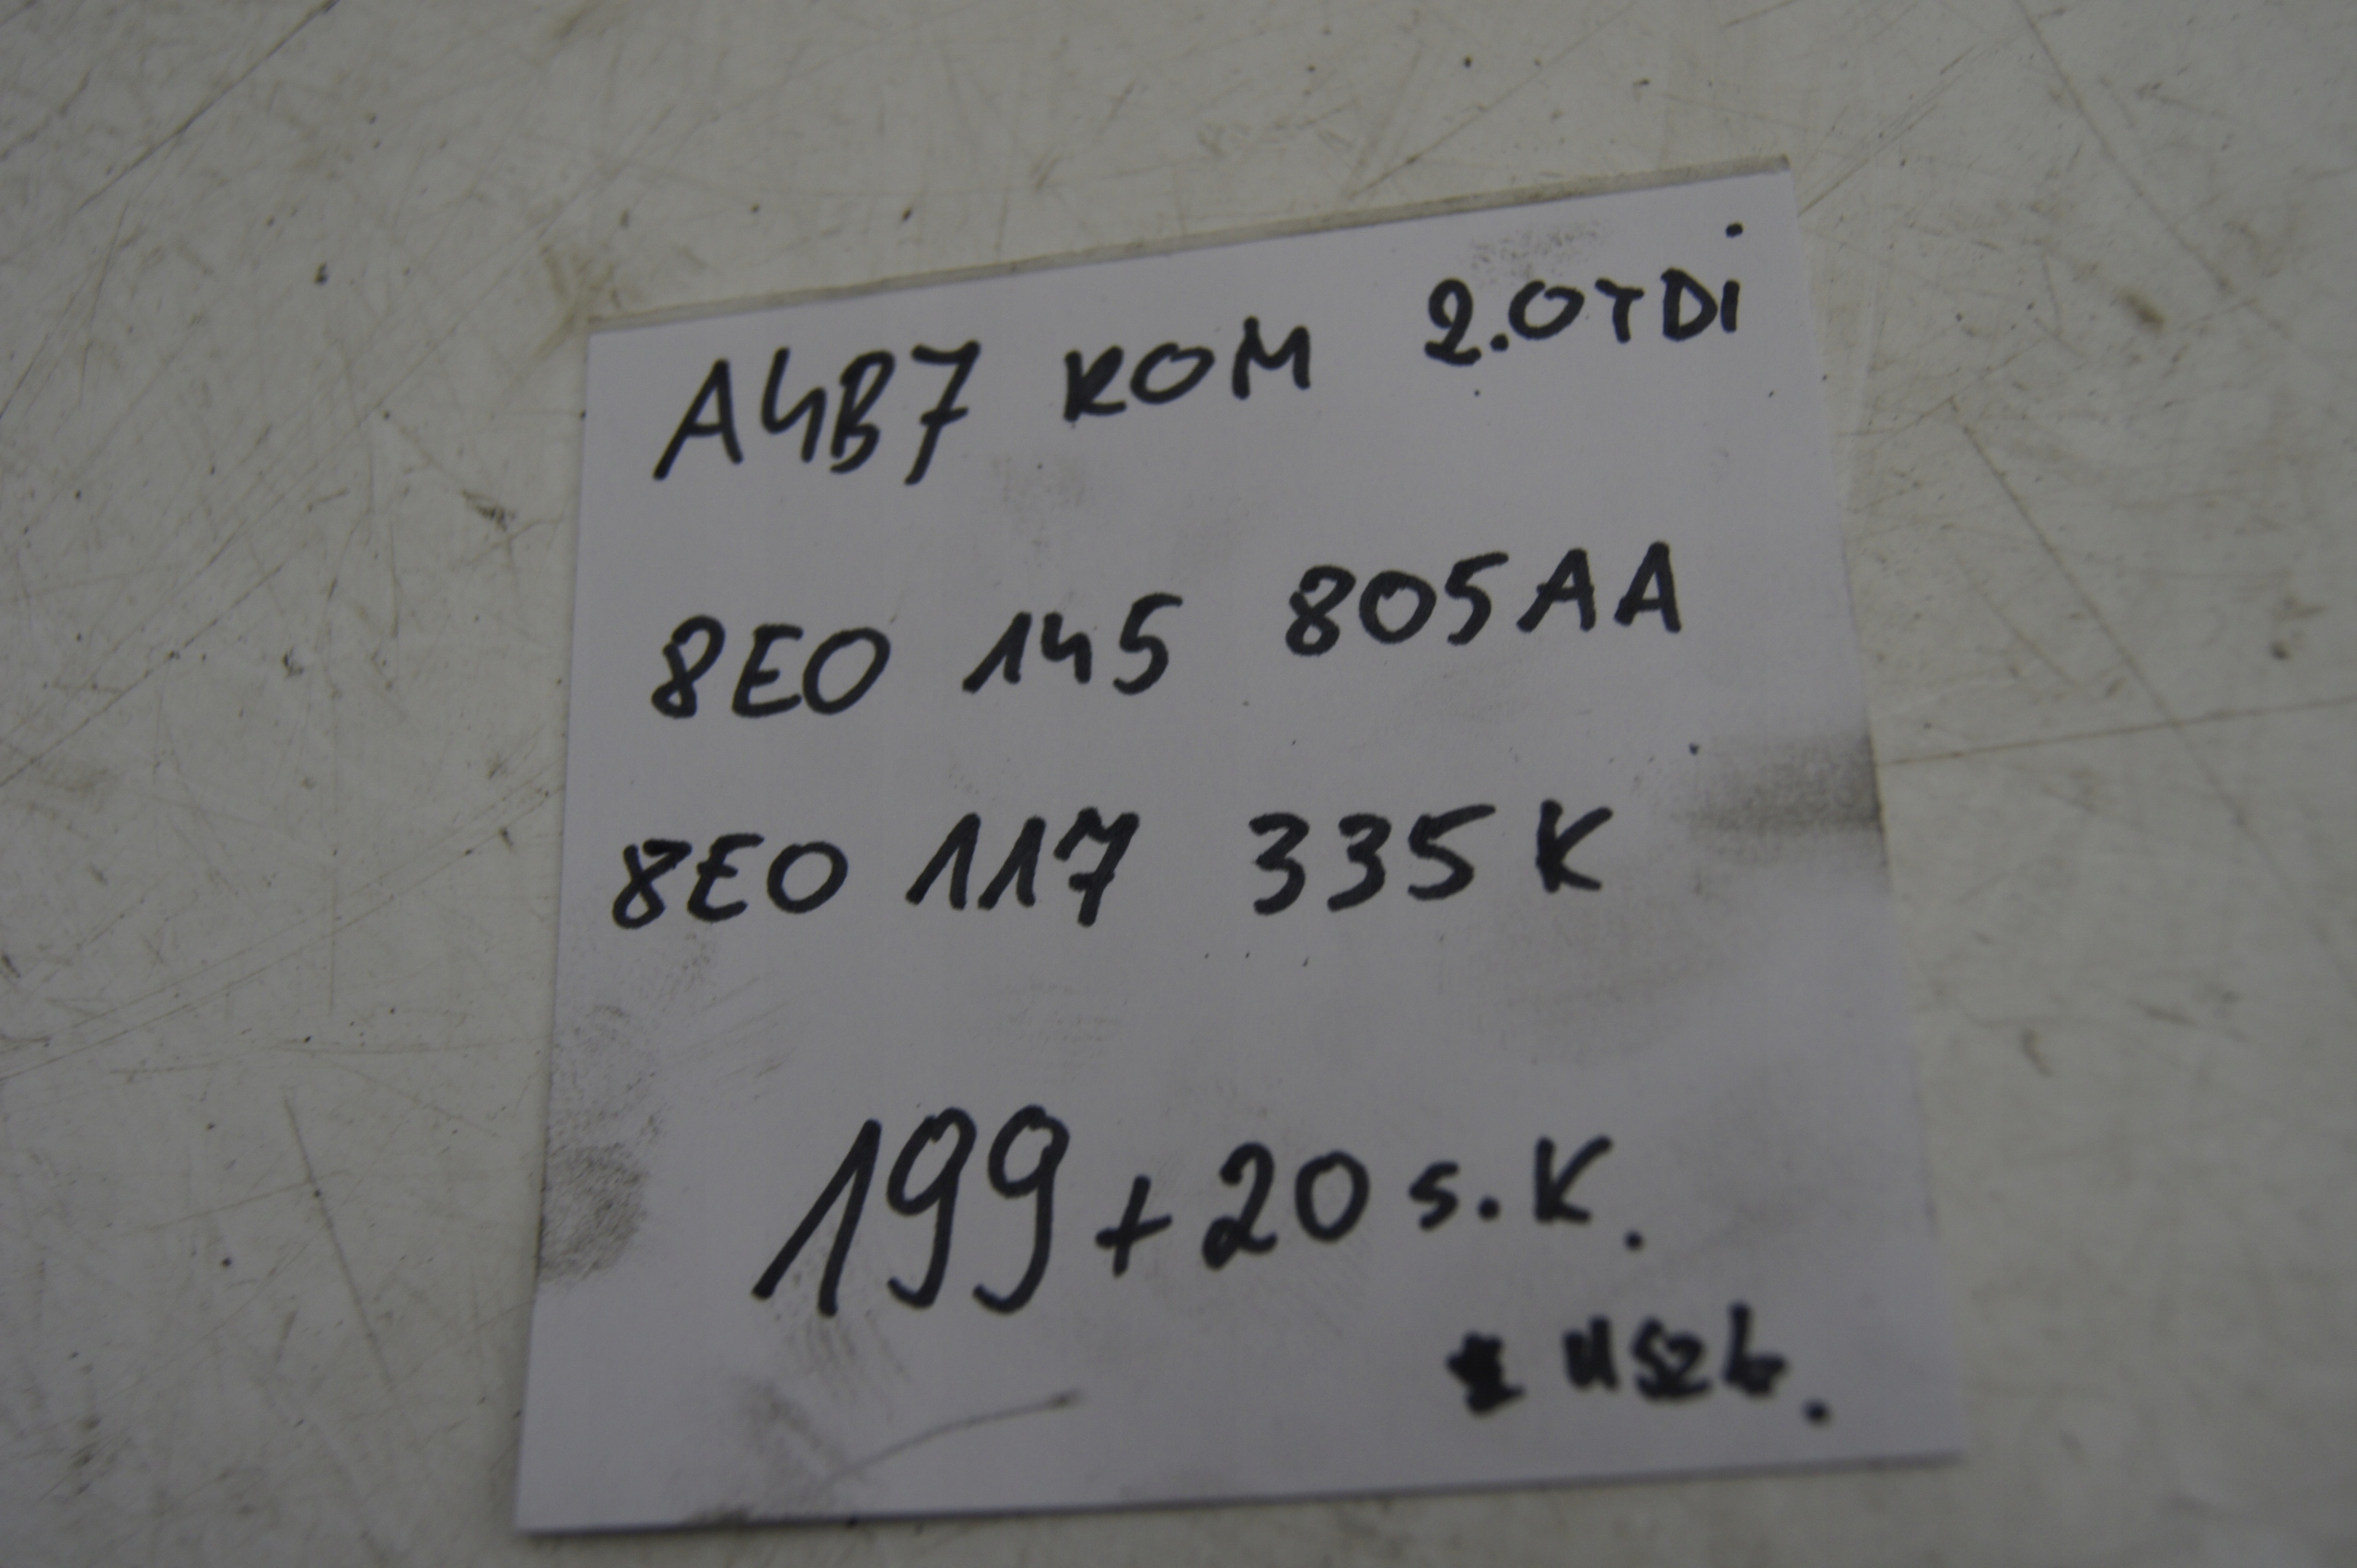 A4B7 KOM 2.0TDi
8E0 145 805AA
8E0 117 335K
199+20 s.K.